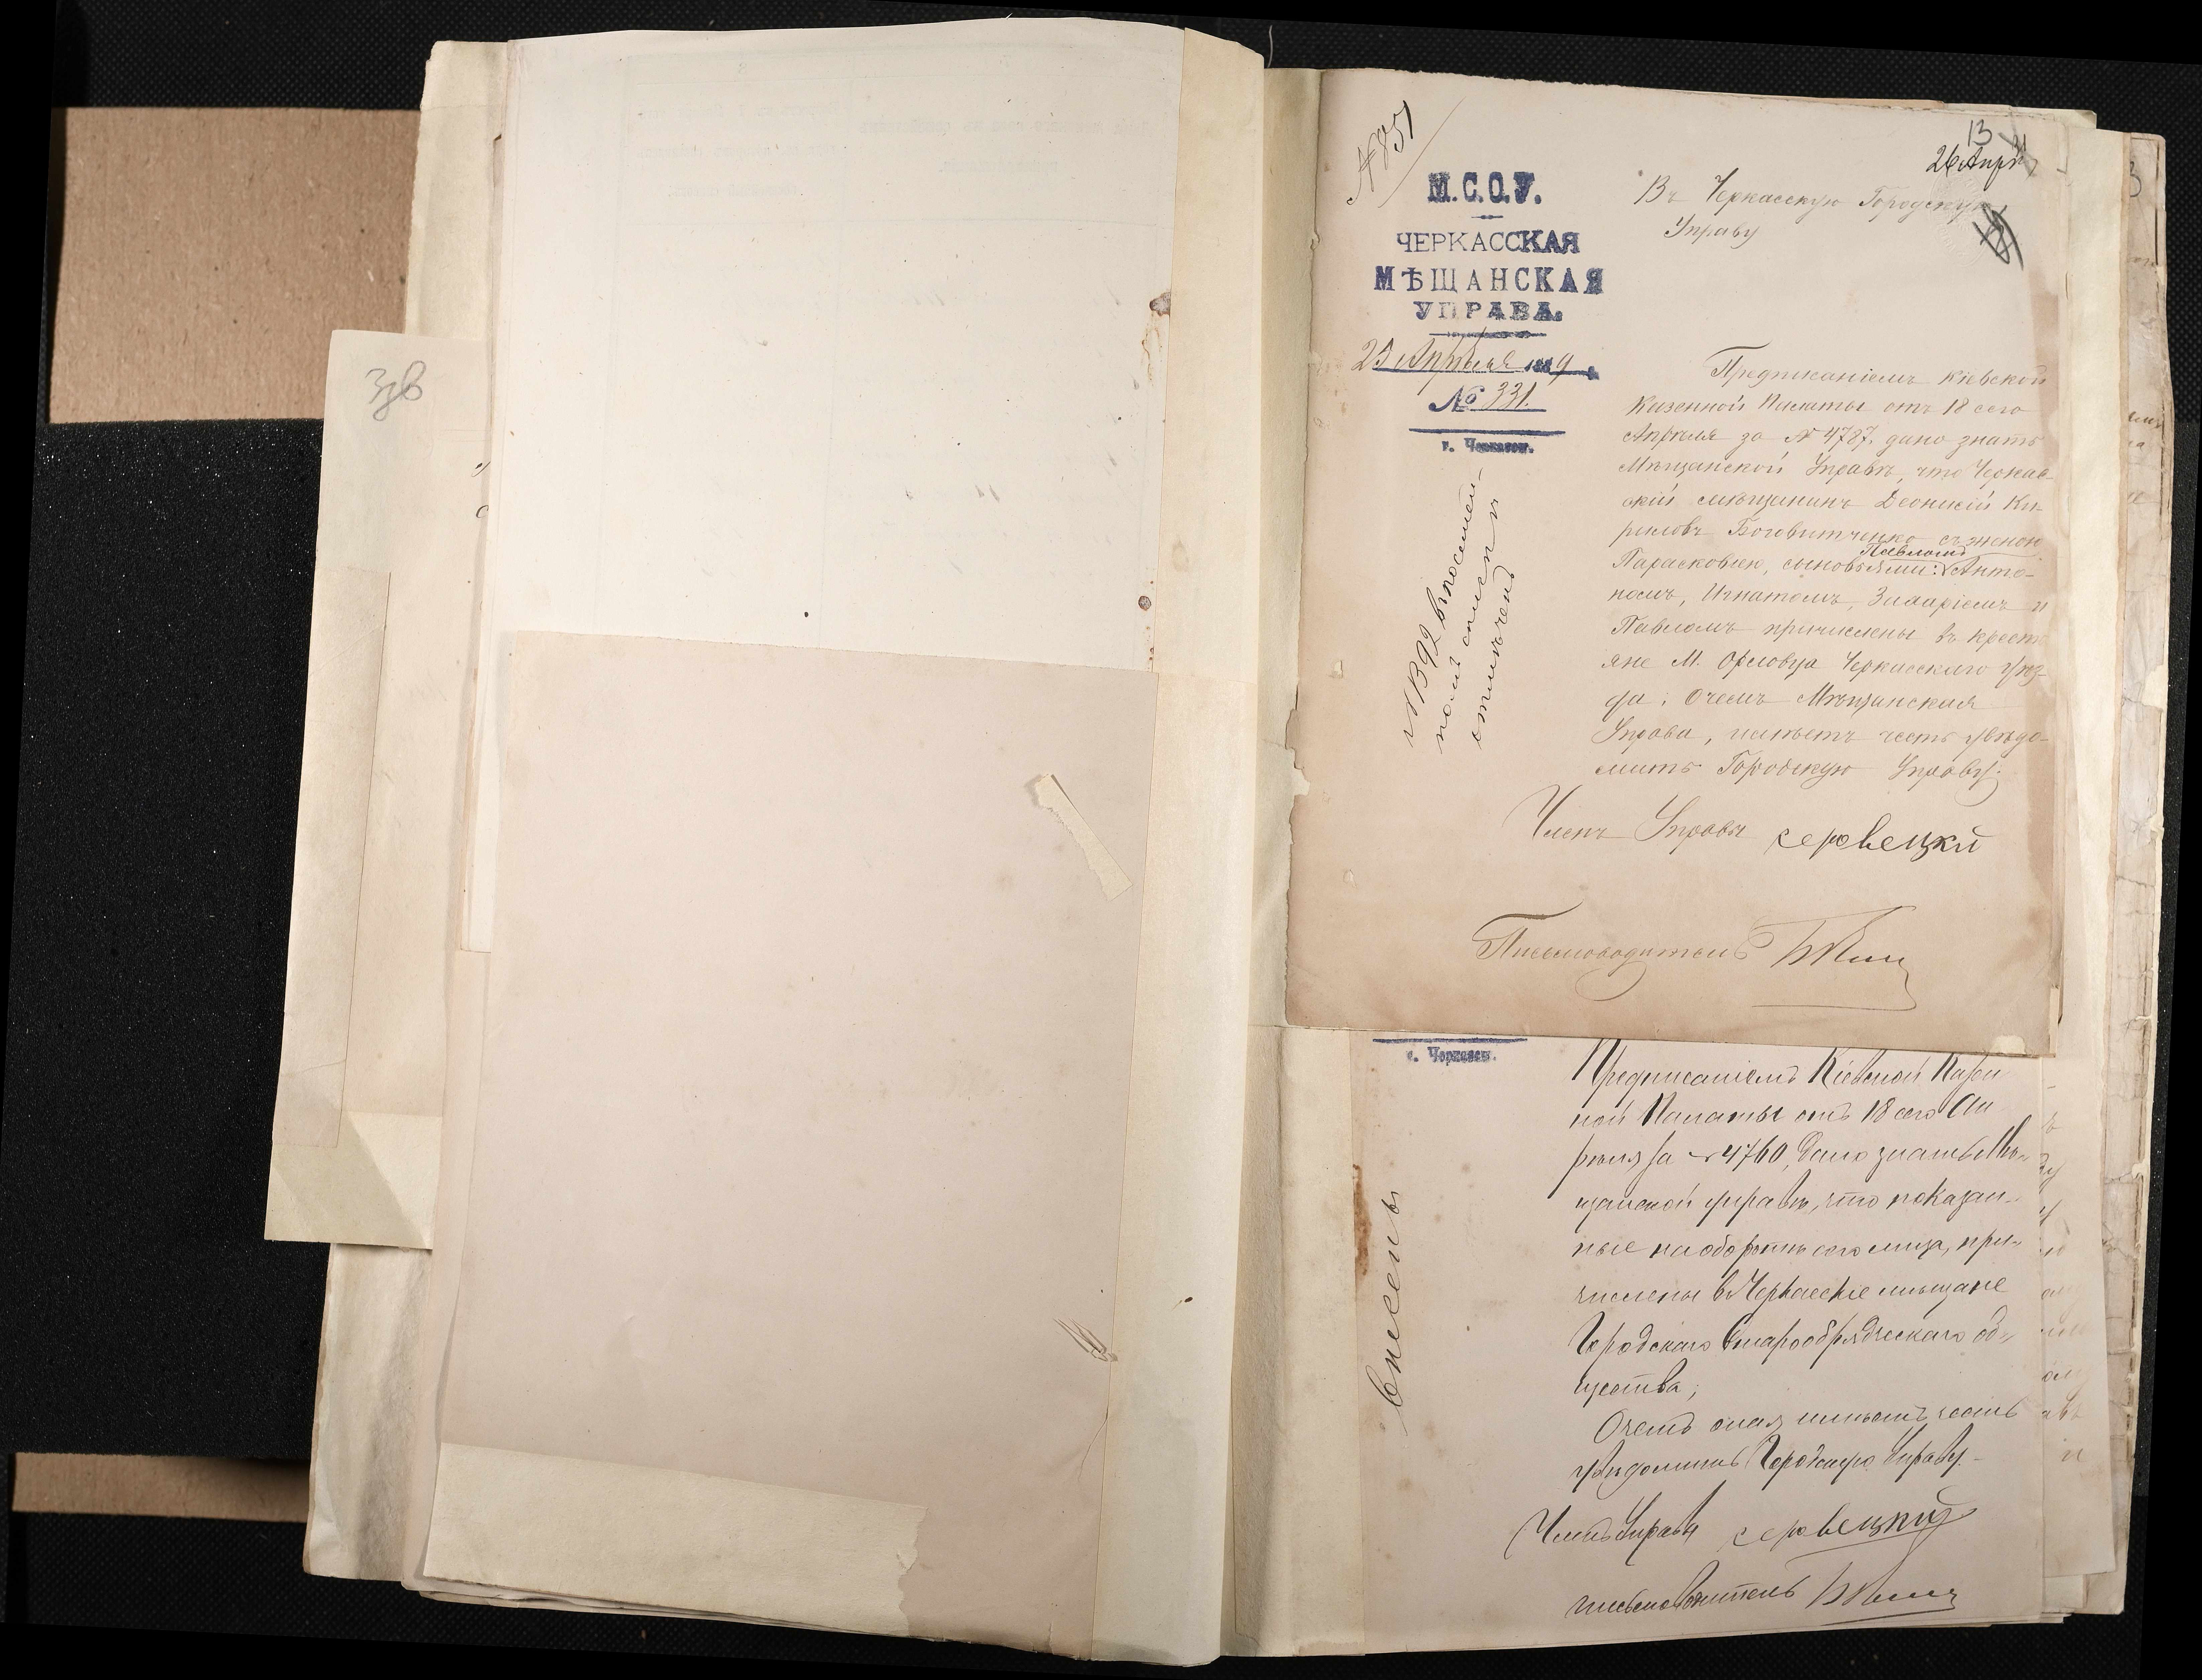 Ззв
№ 851
13
26 Апр.
М.С.О.У.
ЧЕРКАССКАЯ
МѢЩАНСКАЯ
УПРАВА.
25 Апрѣля 1889
№ 331.
г. Черкассы.
Въ Черкасскую Городскую
Управу
Предписаніемъ Кіевской
Казенной Палаты отъ 18 сего
Апрѣля за № 4787, дано знать
Мѣщанской Управѣ, что Черкас-
скій мѣщанинъ Деонисій Ки-
риловъ Боговитченко съ женою
Парасковіею, сыновьями: Павломъ Анто-
номъ, Игнатомъ, Захаріемъ и
Павломъ причислены въ кресть
яне М. Орловца Черкасскаго уѣз-
да; О чемъ Мѣщанская
Управа, имѣетъ честь увѣдо-
мить Городскую Управу.
№ 1392 въ посемей-
номъ спискѣ
отмѣчено
Членъ Управы
Письмоводитель
г. Черкассы.
Предписаніемъ Кіевской Казен
ной Палаты отъ 18 сего Ап
рѣля за № 4760, дано знать Мѣ-
щанской управѣ, что показан-
ные на оборотѣ сего лица, при-
числены в Черкасскіе мѣщане
Городскаго Старообрядческаго об-
щества;
О чемъ оная имѣетъ честь
увѣдомить Городскую Управу.
внесены
Членъ Управы
письмоводитель